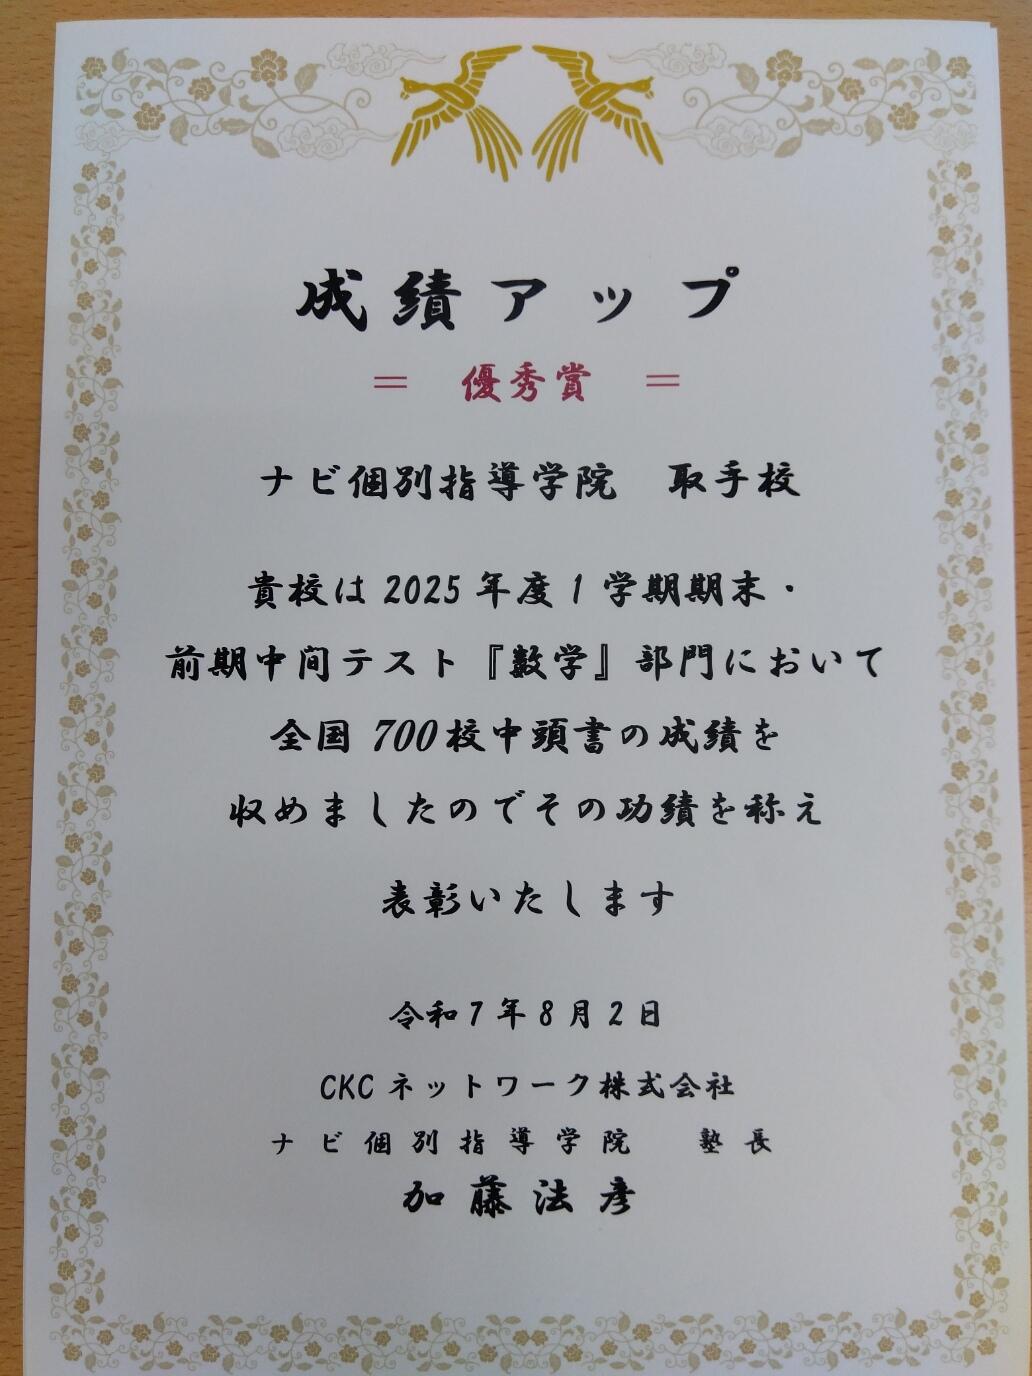 成績アップ
＝　優秀賞　＝
ナビ個別指導学院　取手校
貴校は2025年度1学期期末・
前期中間テスト『数学』部門において
全国700校中頭書の成績を
収めましたのでその功績を称え
表彰いたします
令和7年8月2日
CKCネットワーク株式会社
ナビ個別指導学院　塾長
加藤法彦